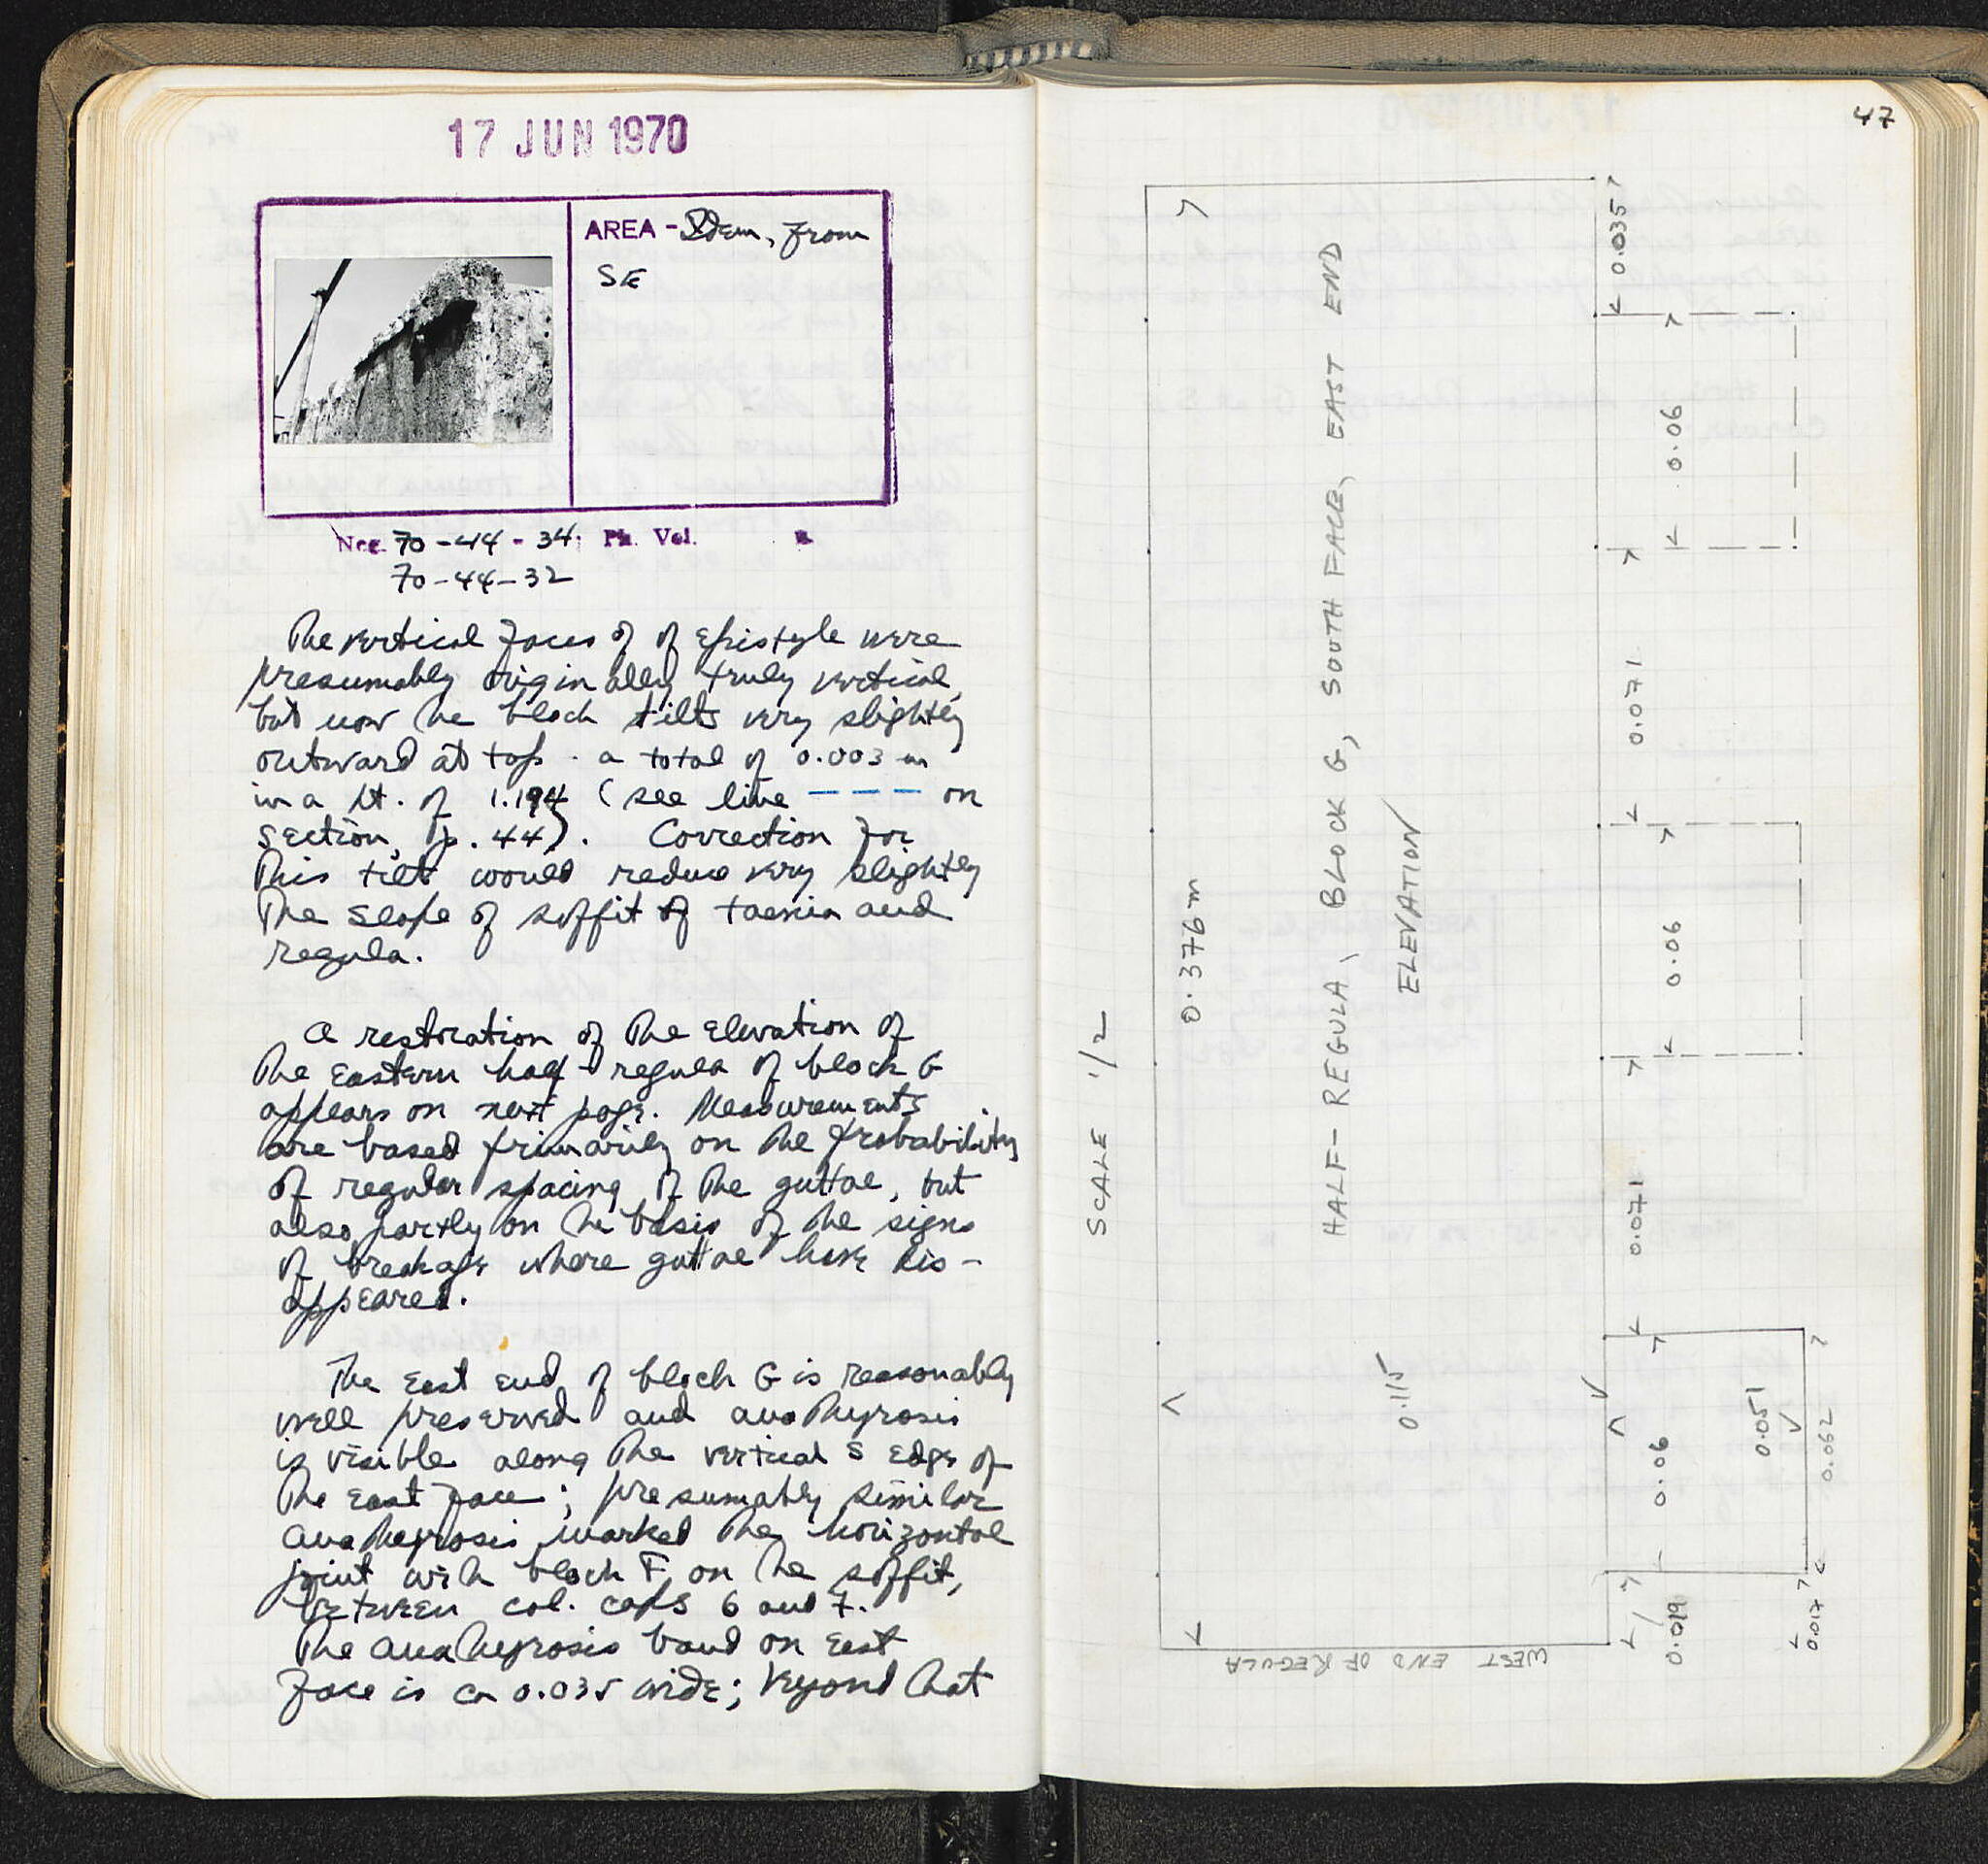 17 JUN 1970
AREA - Idem, from
SE
Neg. 70-44-34; Ph. Vol.
70-44-32
The vertical faces of of Epistyle were
presumably originally truly vertical,
but now the block tilts very slightly
outward at top - a total of 0.003 m
in a ht. of 1.194 (see line - - - - on
section, p. 44). Correction for
this tilt would reduce very slightly
the slope of soffit of taenia and
regula.
A restoration of the Elevation of
the Eastern half-regula of block G
appears on next page. Measurements
are based primarily on the probability
of regular spacing of the guttae, but
also partly on the basis of the signs
of breakage where guttae have dis-
appeared.
The East End of block G is reasonably
well preserved and anathyrosis
is visible along the vertical S Edge of
the East face; presumably similar
anathyrosis marked the horizontal
joint with block F on the soffit,
between col. caps 6 and 7.
The anathyrosis band on East
face is ca 0.035 wide; beyond that
47
SCALE 1/2
0.376 m
HALF-REGULA, BLOCK G, SOUTH FACE, EAST END
ELEVATION
0.115
0.035
0.06
0.071
0.06
0.071
0.06
0.019
0.051
0.052
0.017
WEST END OF REGULA